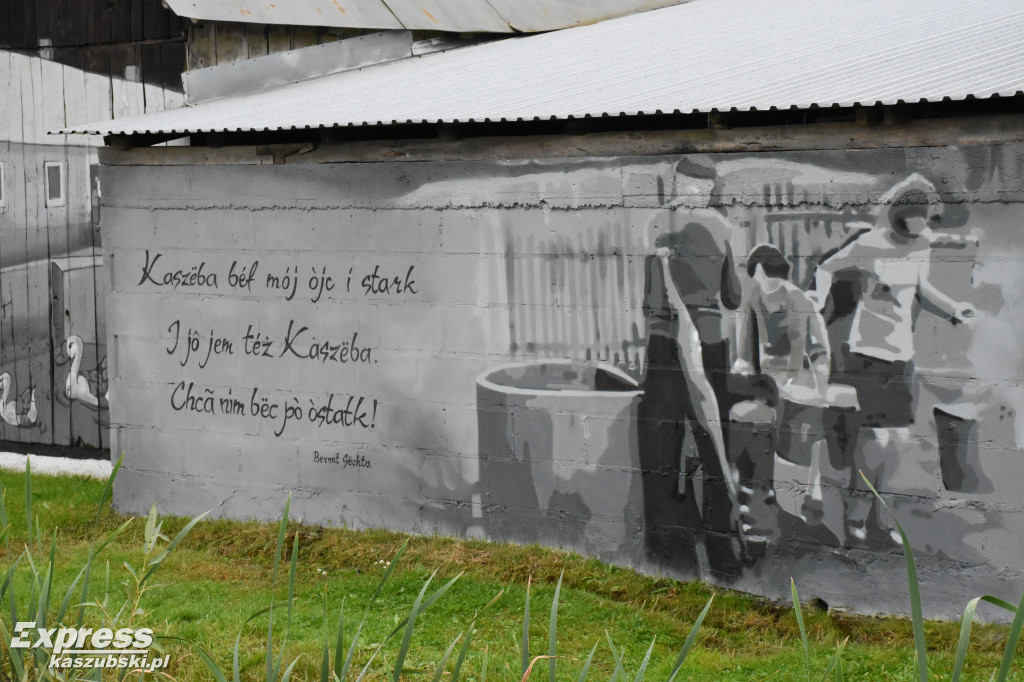 Kaszëba béł mój òjc i stark
I jô jem téż Kaszëba.
Chcã nim bëc pò òstatk!
Bernat Sëchta
Express
kaszubski.pl